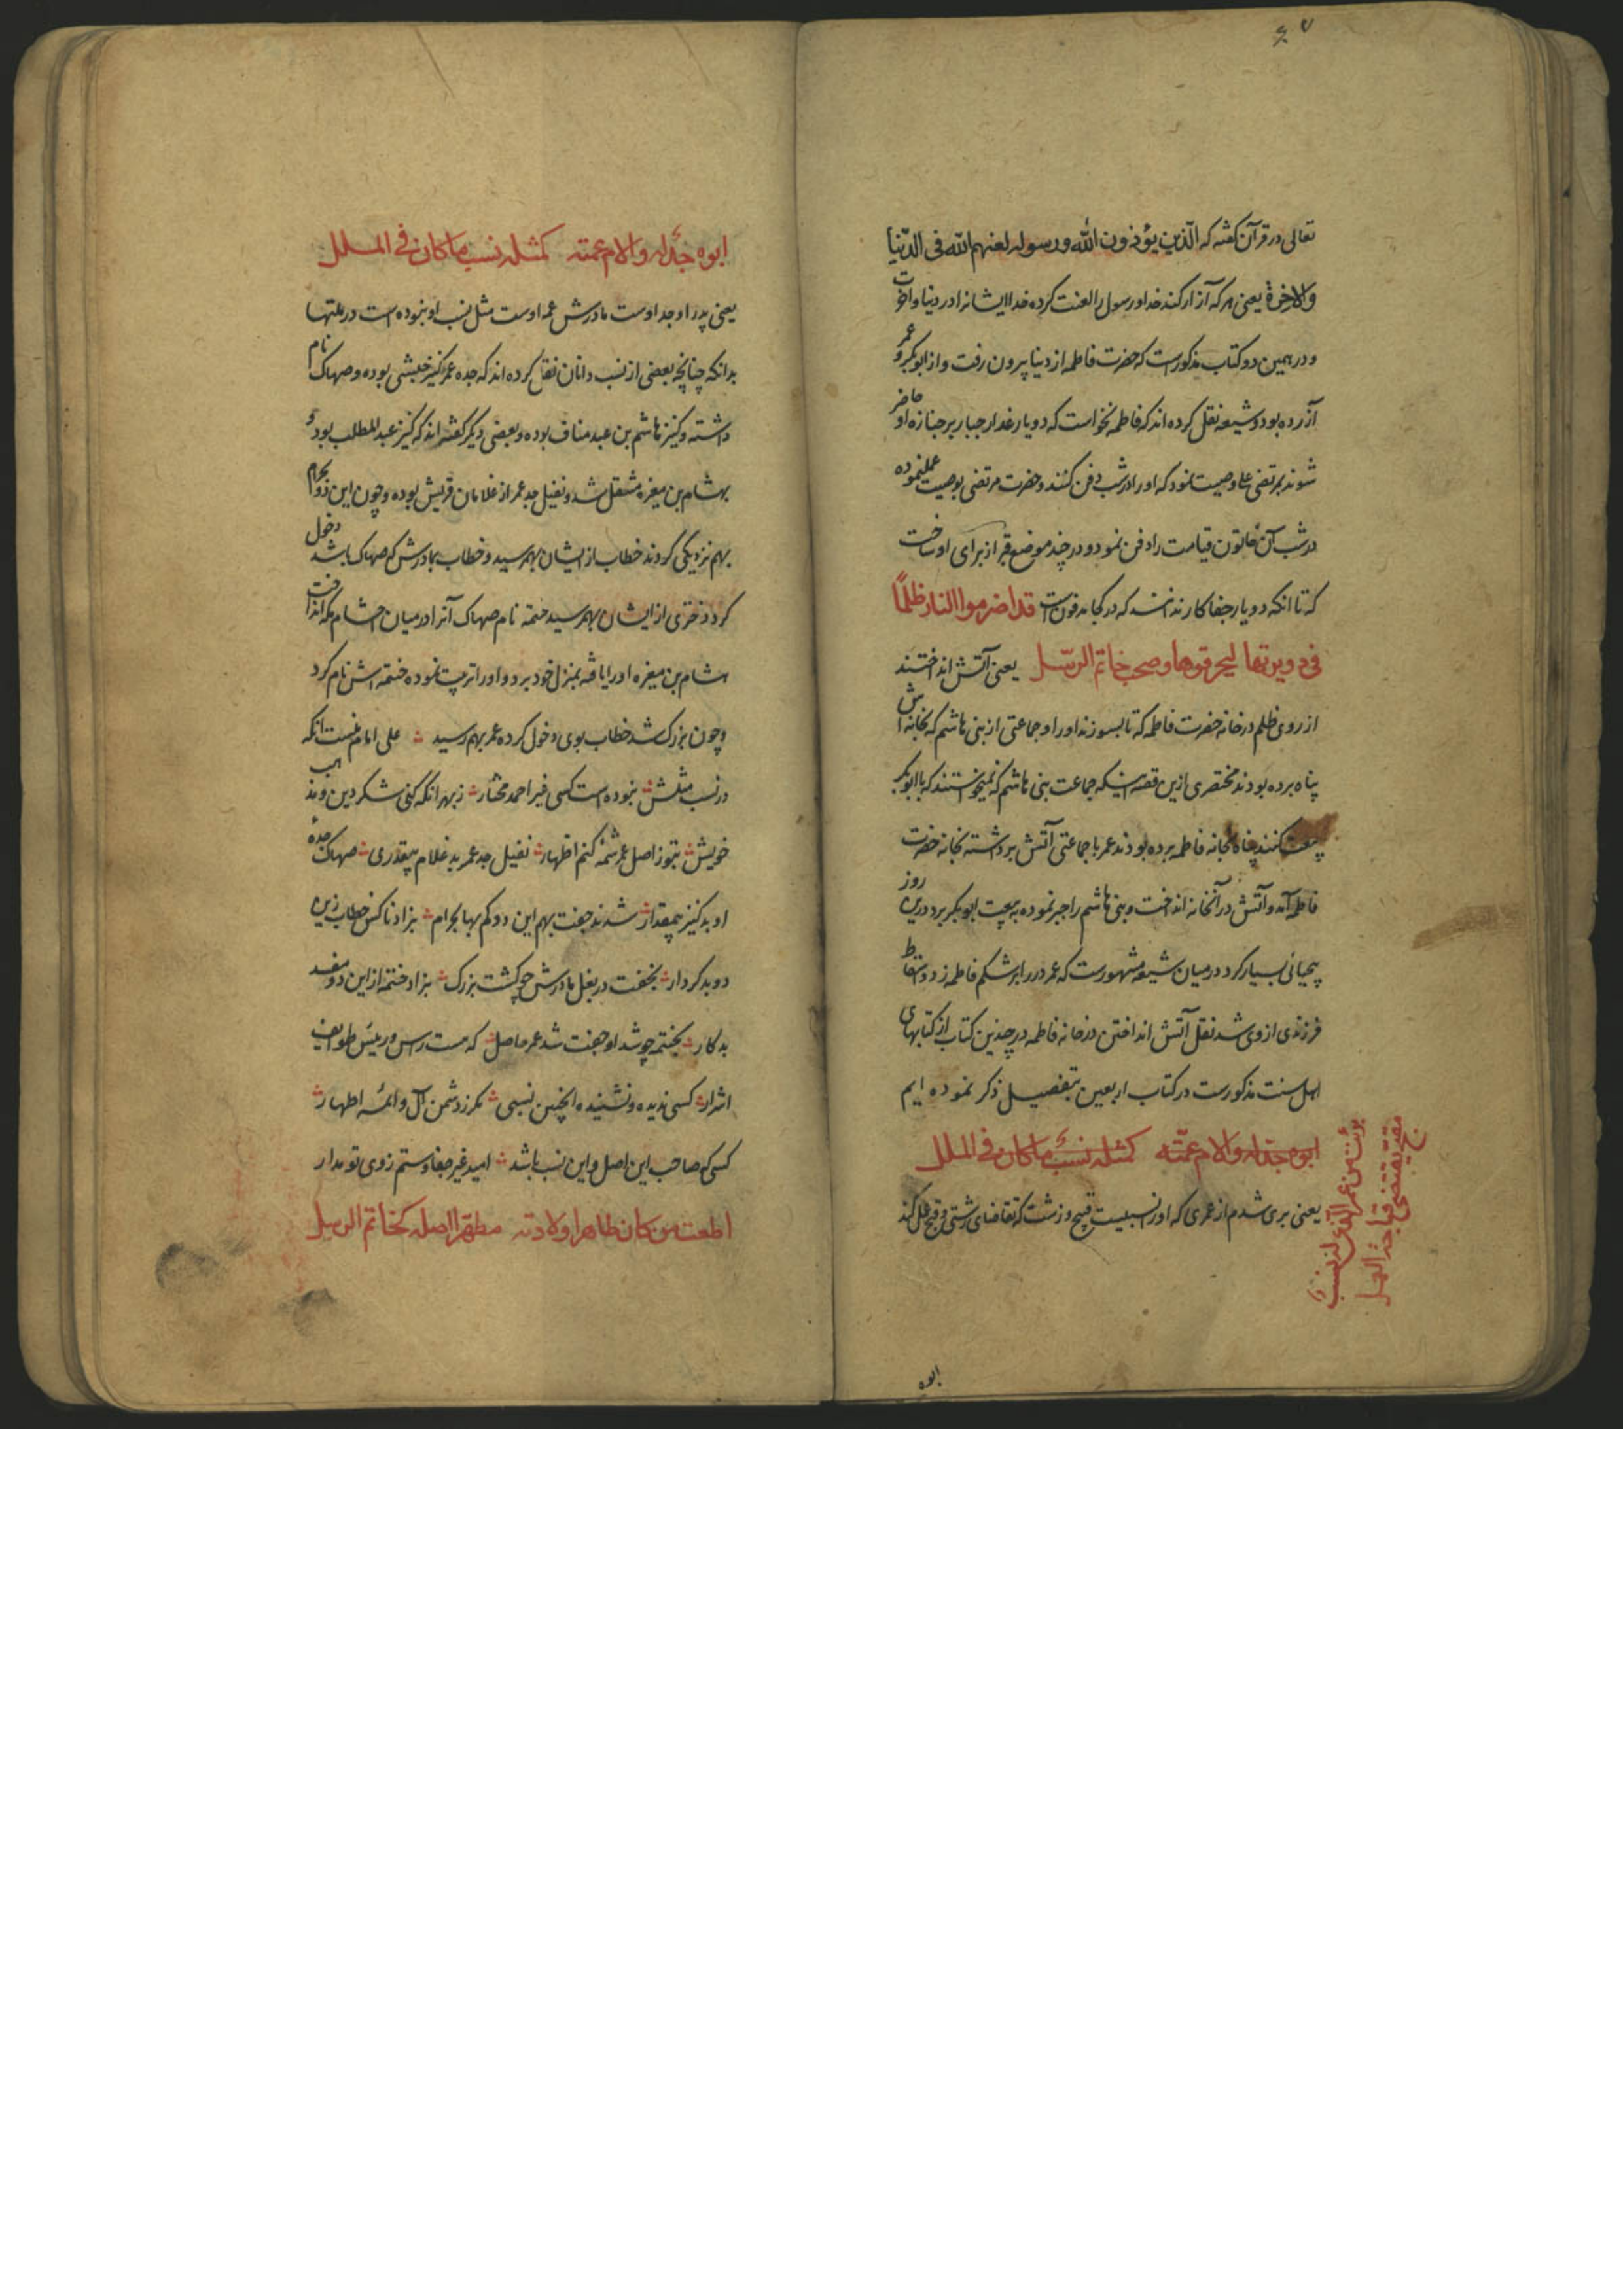 تعالی در قرآن گفته که الّذین یؤذون الله ورسوله لعنهم الله فی الدّنیا
والاخرة یعنی هر که آزار کند خدا و رسول را لعنت کرده خدا ایشانرا در دنیا و آخرت
و در همین دو کتاب مذکورست که حضرت فاطمه از دنیا بیرون رفت و از ابوبکر و عمر
آزرده بود و شیعه نقل کرده اند که فاطمه نخواست که دو یار غدار جبار بر جنازه او حاضر
شوند بمرتضی علی وصیت نمود که او را در شب دفن کنند و حضرت مرتضی بوصیت عمل نموده
در شب آن خاتون قیامت را دفن نمود و در چند موضع قبر از برای او ساخت
که تا انکه دو یار جفا کار ندانند که در کجا مدفونست قد اضرموا النار ظلمًا
فی دویرتها لیحرقوها وصحب خاتم الرسل یعنی آتش انداختند
از روی ظلم در خانه حضرت فاطمه که تا بسوزند او را و جماعتی از بنی هاشم که بخانه اش
پناه برده بودند مختصری ازین قصه اینکه جماعت بنی هاشم که نمیخواستند که با ابوبکر
بیعت کنند پناه بخانه فاطمه برده بودند عمر با جماعتی آتش برداشته بخانه حضرت
فاطمه آمد و آتش در آنخانه انداخت و بنی هاشم را جبر نموده به بیعت ابوبکر برد درین روز
بیحیائی بسیار کرد در میان شیعه مشهورست که عمر در را بر شکم فاطمه زد و اسقاط
فرزندی از وی شد نقل آتش انداختن در خانه فاطمه در چندین کتاب از کتابهای
اهل سنت مذکورست در کتاب اربعین بتفصیل ذکر نموده ایم
برئت من عمر الذی له نسب
مقذر یقتضی قباحة العمل
ابوه جد له والام عمّته کمثله نسب ما کان فی الملل
یعنی بری شدم از عمری که او را نسبیست قبیح و زشت که تقاضای زشتی و قبح عمل کند
ابوه
ابوه جدّ له والام عمته کمثله نسب ما کان فی الملل
یعنی پدر او جد اوست مادرش عمه اوست مثل نسب او نبوده است در ملتها
بدانکه چنانچه بعضی از نسب دانان نقل کرده اند که جده عمر کنیز حبشی بوده و صهاک نام
داشته و کنیز هاشم بن عبد مناف بوده و بعضی دیگر گفته اند که کنیز عبد المطلب بود و
بهشام بن مغیره منتقل شد و نفیل جد عمر از غلامان قریش بوده و چون این دو بحرام
بهم نزدیکی کردند خطاب از ایشان بهم رسید و خطاب بمادرش که صهاک باشد دخول
کرد دختری از ایشان بهم رسید حنتمه نام صهاک آنرا در میان احشام مکه انداخت
هشام بن مغیره او را یافته بمنزل خود برد و او را تربیت نموده حنتمه اش نام کرد
و چون بزرک شد خطاب بوی دخول کرده عمر بهم رسید علی امام منست انکه
در نسب مثلش نبوده است کسی غیر احمد مختار ز بهر انکه کنی شکر دین و مذهب
خویش بنوز اصل عمر شمهٔ کنم اظهار نفیل جد عمر بد غلام بیقدری صهاک جدهٔ
او بد کنیز بیمقدار شدند جفت بهم این دو کم بها بحرام بزاد ناکس خطاب زین
دو بد کردار بخفت در بغل مادرش چو کشت بزرک بزاد حنتمه از این دو مفسد
بدکار بحنتمه چو شد او جفت شد عمر حاصل که هست راس و رئیس طوایف
اشرار کسی ندیده و نشنیده اینچنین نسبی مکر ز دشمن آل و ائمه اطهار
کسی که صاحب این اصل و این نسب باشد امید غیر جفا و ستم ز وی تو مدار
اطعت من کان طاهرا ولادته مطهر اصله کخاتم الرسل